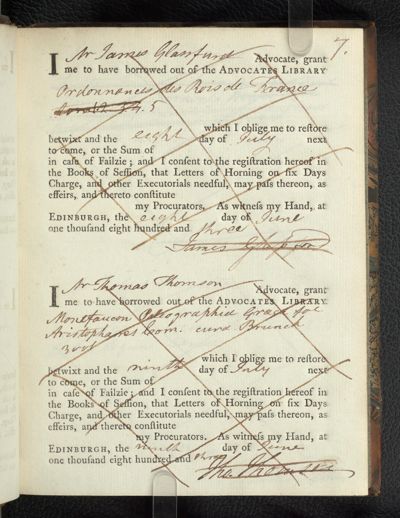 7.
I Mr James Glassfurd Advocate, grant
me to have borrowed out of the ADVOCATES LIBRARY
Ordonnances des Rois de France
5
which I oblige me to reſtore
betwixt and the eight day of July next
to come, or the Sum of
in caſe of Failzie; and I conſent to the regiſtration hereof in
the Books of Seſſion, that Letters of Horning on ſix Days
Charge, and other Executorials needful, may paſs thereon, as
effeirs, and thereto conſtitute
my Procurators. As witneſs my Hand, at
EDINBURGH, the eight day of June
one thouſand eight hundred and three
James Glassfurd
I Mr Thomas Thomson Advocate, grant
me to have borrowed out of the ADVOCATES LIBRARY
Monefaucon Paleographia Graeca fol
Aristophanis Com. cura Brunck
3 vols
which I oblige me to reſtore
betwixt and the ninth day of July next
to come, or the Sum of
in caſe of Failzie; and I conſent to the regiſtration hereof in
the Books of Seſſion, that Letters of Horning on ſix Days
Charge, and other Executorials needful, may paſs thereon, as
effeirs, and thereto conſtitute
my Procurators. As witneſs my Hand, at
EDINBURGH, the ninth day of June
one thouſand eight hundred and three
Tho Thomson